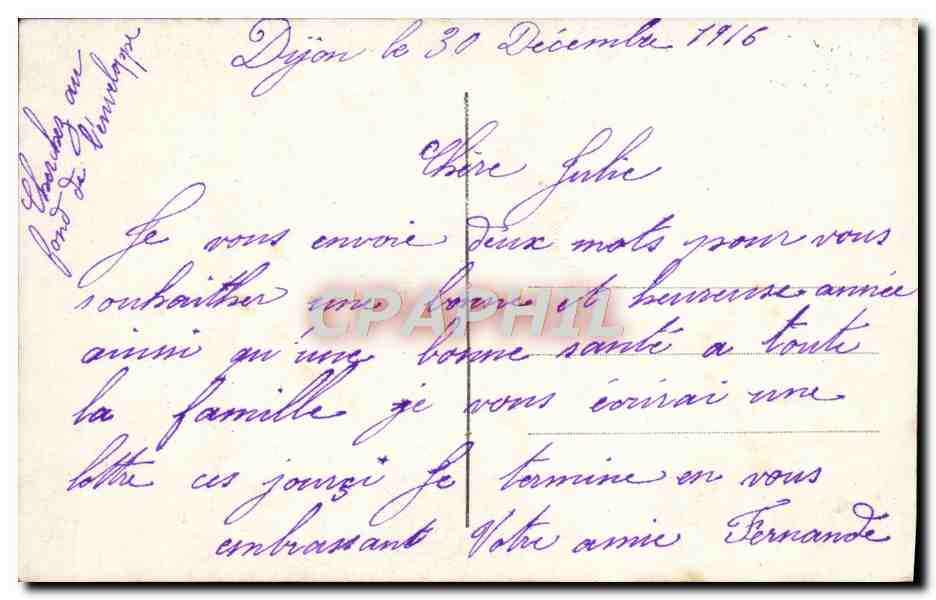 Dijon le 30 Décembre 1916
Cherchez au
fond de l'enveloppe
Chère Julie
Je vous envoie deux mots pour vous
souhaither une bonne et heureuse année
ainsi qu'une bonne santé a toute
la famille je vous écirai une
lettre ces jours çi Je termine en vous
embrassant Votre amie Fernande
CPAPHIL